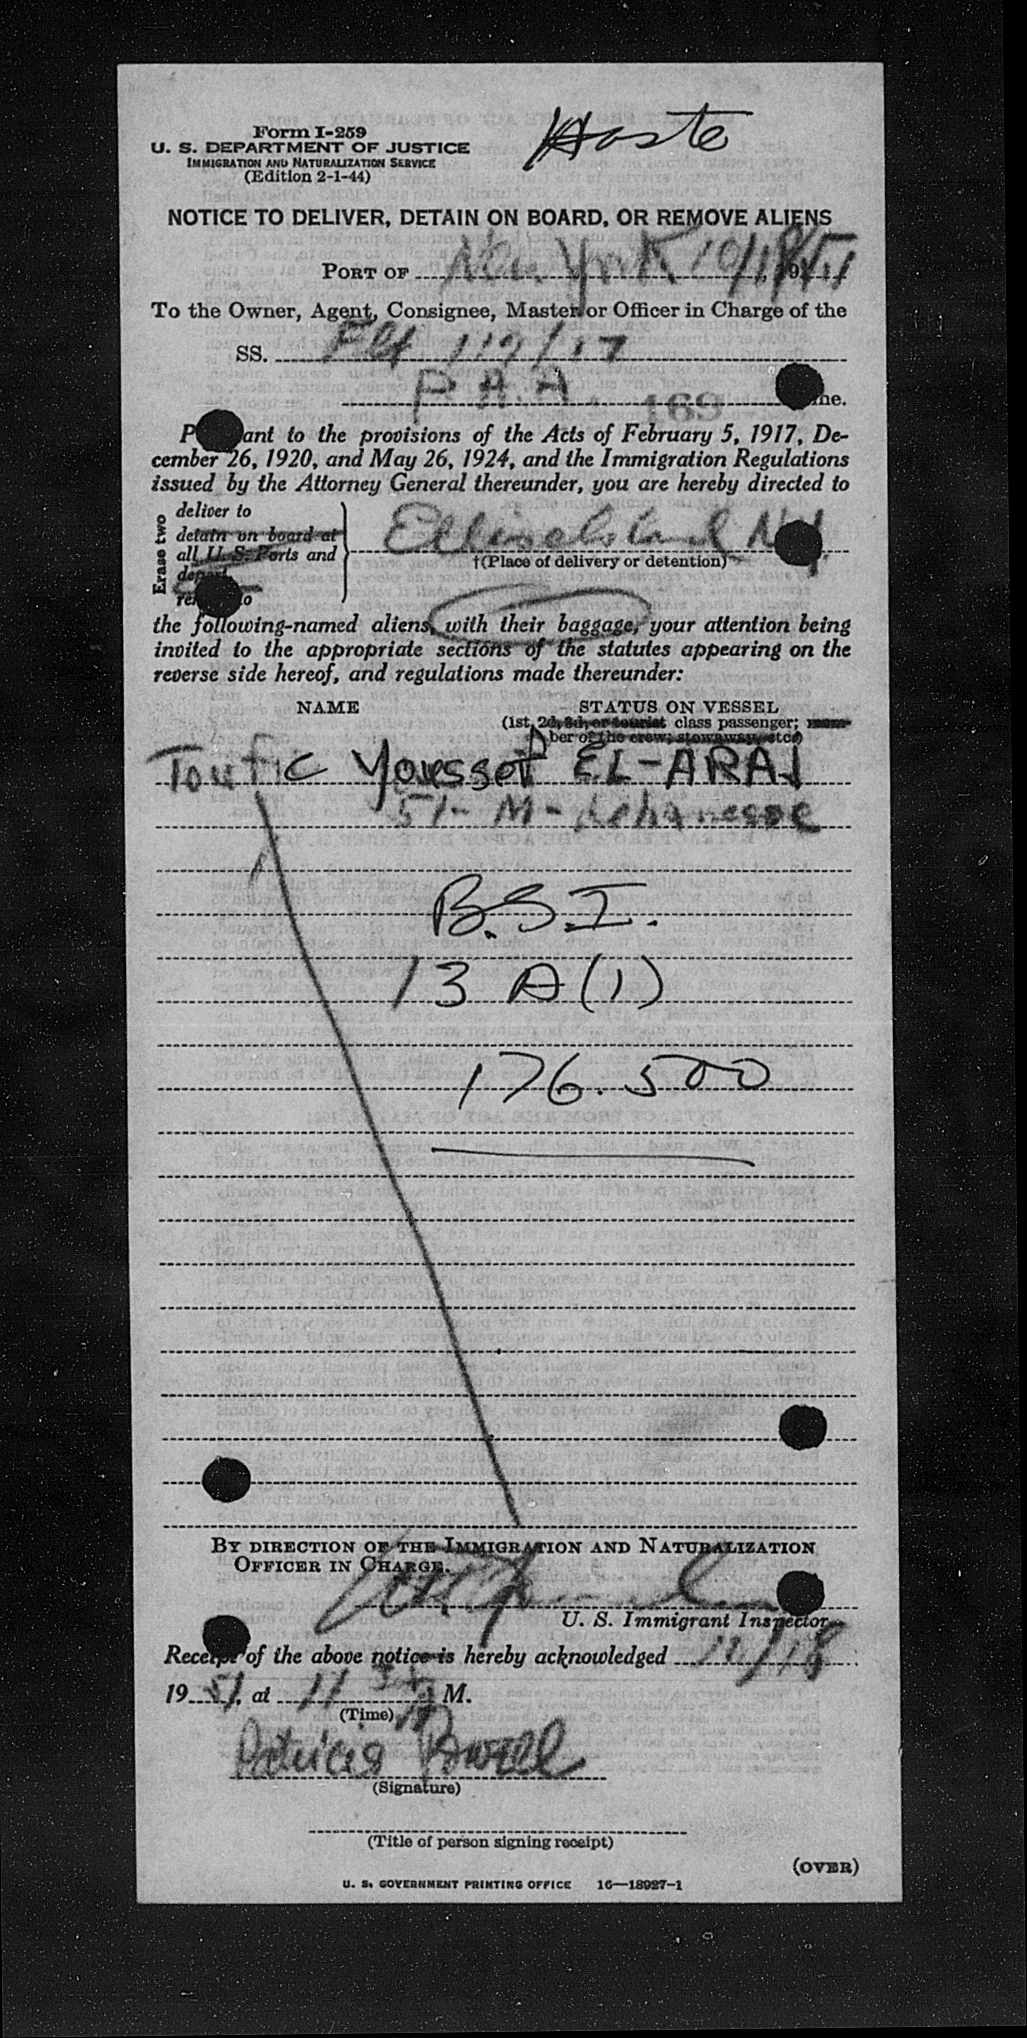 Form I-259
U. S. DEPARTMENT OF JUSTICE
IMMIGRATION AND NATURALIZATION SERVICE
(Edition 2-1-44)
NOTICE TO DELIVER, DETAIN ON BOARD, OR REMOVE ALIENS
PORT OF New York 10/18, 1951
To the Owner, Agent, Consignee, Master or Officer in Charge of the
SS. Flt 119/17
P.A.A. 169
to the provisions of the Acts of February 5, 1917, De-
cember 26, 1920, and May 26, 1924, and the Immigration Regulations
issued by the Attorney General thereunder, you are hereby directed to
Erase two
deliver to
detain on board at
all U. S. Ports and
Ellis Island N.Y.
†(Place of delivery or detention)
the following-named aliens, with their baggage, your attention being
invited to the appropriate sections of the statutes appearing on the
reverse side hereof, and regulations made thereunder:
NAME STATUS ON VESSEL
(1st, 2d, 3d, or tourist class passenger; mem-
ber of the crew; stowaway, etc.)
Toufic Youssef EL-ARAJ
51- M- Lebanesse
B.S.I.
13 A (1)
176.500
BY DIRECTION OF THE IMMIGRATION AND NATURALIZATION
OFFICER IN CHARGE.
U. S. Immigrant Inspector.
Receipt of the above notice is hereby acknowledged 10/18
1951, at 11 M.
(Time)
Patricia Powell
(Signature)
(Title of person signing receipt)
(OVER)
U. S. GOVERNMENT PRINTING OFFICE 16—18927-1